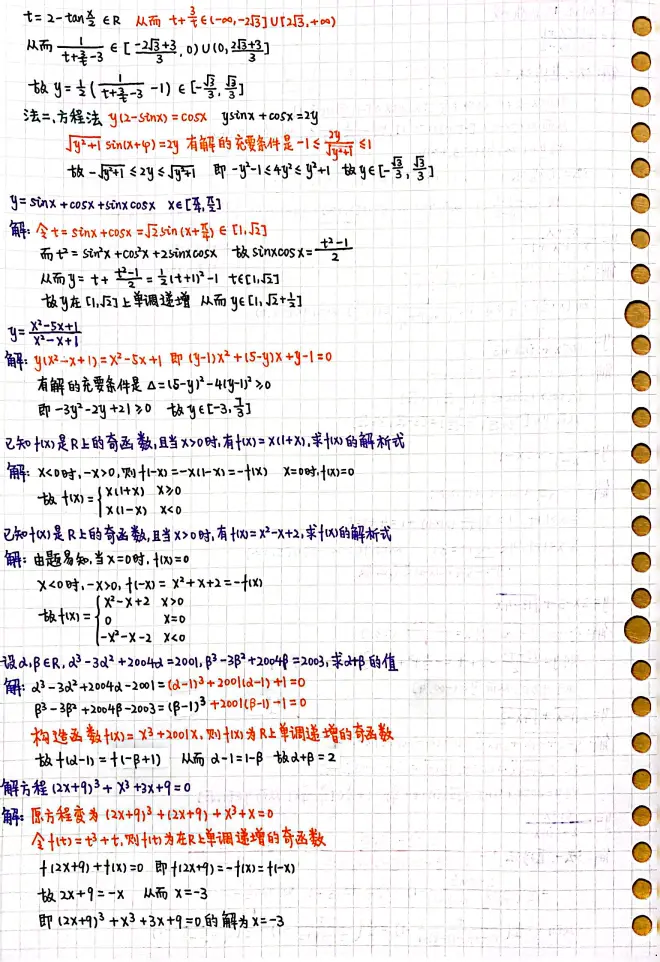 t=2-tan x/2 ∈R 从而 t+3/t∈(-∞,-2√3]∪[2√3,+∞)
从而 1/(t+3/t-3) ∈[(-2√3+3)/3,0)∪(0,(2√3+3)/3]
故 y=1/2(1/(t+3/t-3) -1)∈[-√3/3,√3/3]
法二、方程法 y(2-sinx)=cosx ysinx+cosx=2y
√(y²+1) sin(x+φ)=2y 有解的充要条件是 -1≤2y/√(y²+1)≤1
故 -√(y²+1)≤2y≤√(y²+1) 即 -y²-1≤4y²≤y²+1 故 y∈[-√3/3,√3/3]
y=sinx+cosx+sinxcosx x∈[π/4,π/2]
解: 令t=sinx+cosx=√2sin(x+π/4)∈[1,√2]
而t²=sin²x+cos²x+2sinxcosx 故sinxcosx=(t²-1)/2
从而y=t+(t²-1)/2=1/2(t+1)²-1 t∈[1,√2]
故y在[1,√2]上单调递增 从而y∈[1,√2+1/2]
y=(x²-5x+1)/(x²-x+1)
解: y(x²-x+1)=x²-5x+1 即 (y-1)x²+(5-y)x+y-1=0
有解的充要条件是 Δ=(5-y)²-4(y-1)²≥0
即 -3y²-2y+21≥0 故y∈[-3,7/3]
已知f(x)是R上的奇函数,且当x>0时,有f(x)=x(1+x),求f(x)的解析式
解: x<0时,-x>0,则f(-x)=-x(1-x)=-f(x) x=0时,f(x)=0
故 f(x)={x(1+x) x≥0
x(1-x) x<0
已知f(x)是R上的奇函数,且当x>0时,有f(x)=x²-x+2,求f(x)的解析式
解: 由题易知,当x=0时,f(x)=0
x<0时,-x>0,f(-x)=x²+x+2=-f(x)
故f(x)={x²-x+2 x>0
0 x=0
-x²-x-2 x<0
设α,β∈R,α³-3α²+2004α=2001,β³-3β²+2004β=2003,求α+β的值
解: α³-3α²+2004α-2001=(α-1)³+2001(α-1)+1=0
β³-3β²+2004β-2003=(β-1)³+2001(β-1)-1=0
构造函数f(x)=x³+2001x,则f(x)为R上单调递增的奇函数
故f(α-1)=f(-β+1) 从而 α-1=1-β 故α+β=2
解方程(2x+9)³+x³+3x+9=0
解: 原方程变为(2x+9)³+(2x+9)+x³+x=0
令f(t)=t³+t,则f(t)为在R上单调递增的奇函数
f(2x+9)+f(x)=0 即f(2x+9)=-f(x)=f(-x)
故2x+9=-x 从而x=-3
即(2x+9)³+x³+3x+9=0的解为x=-3